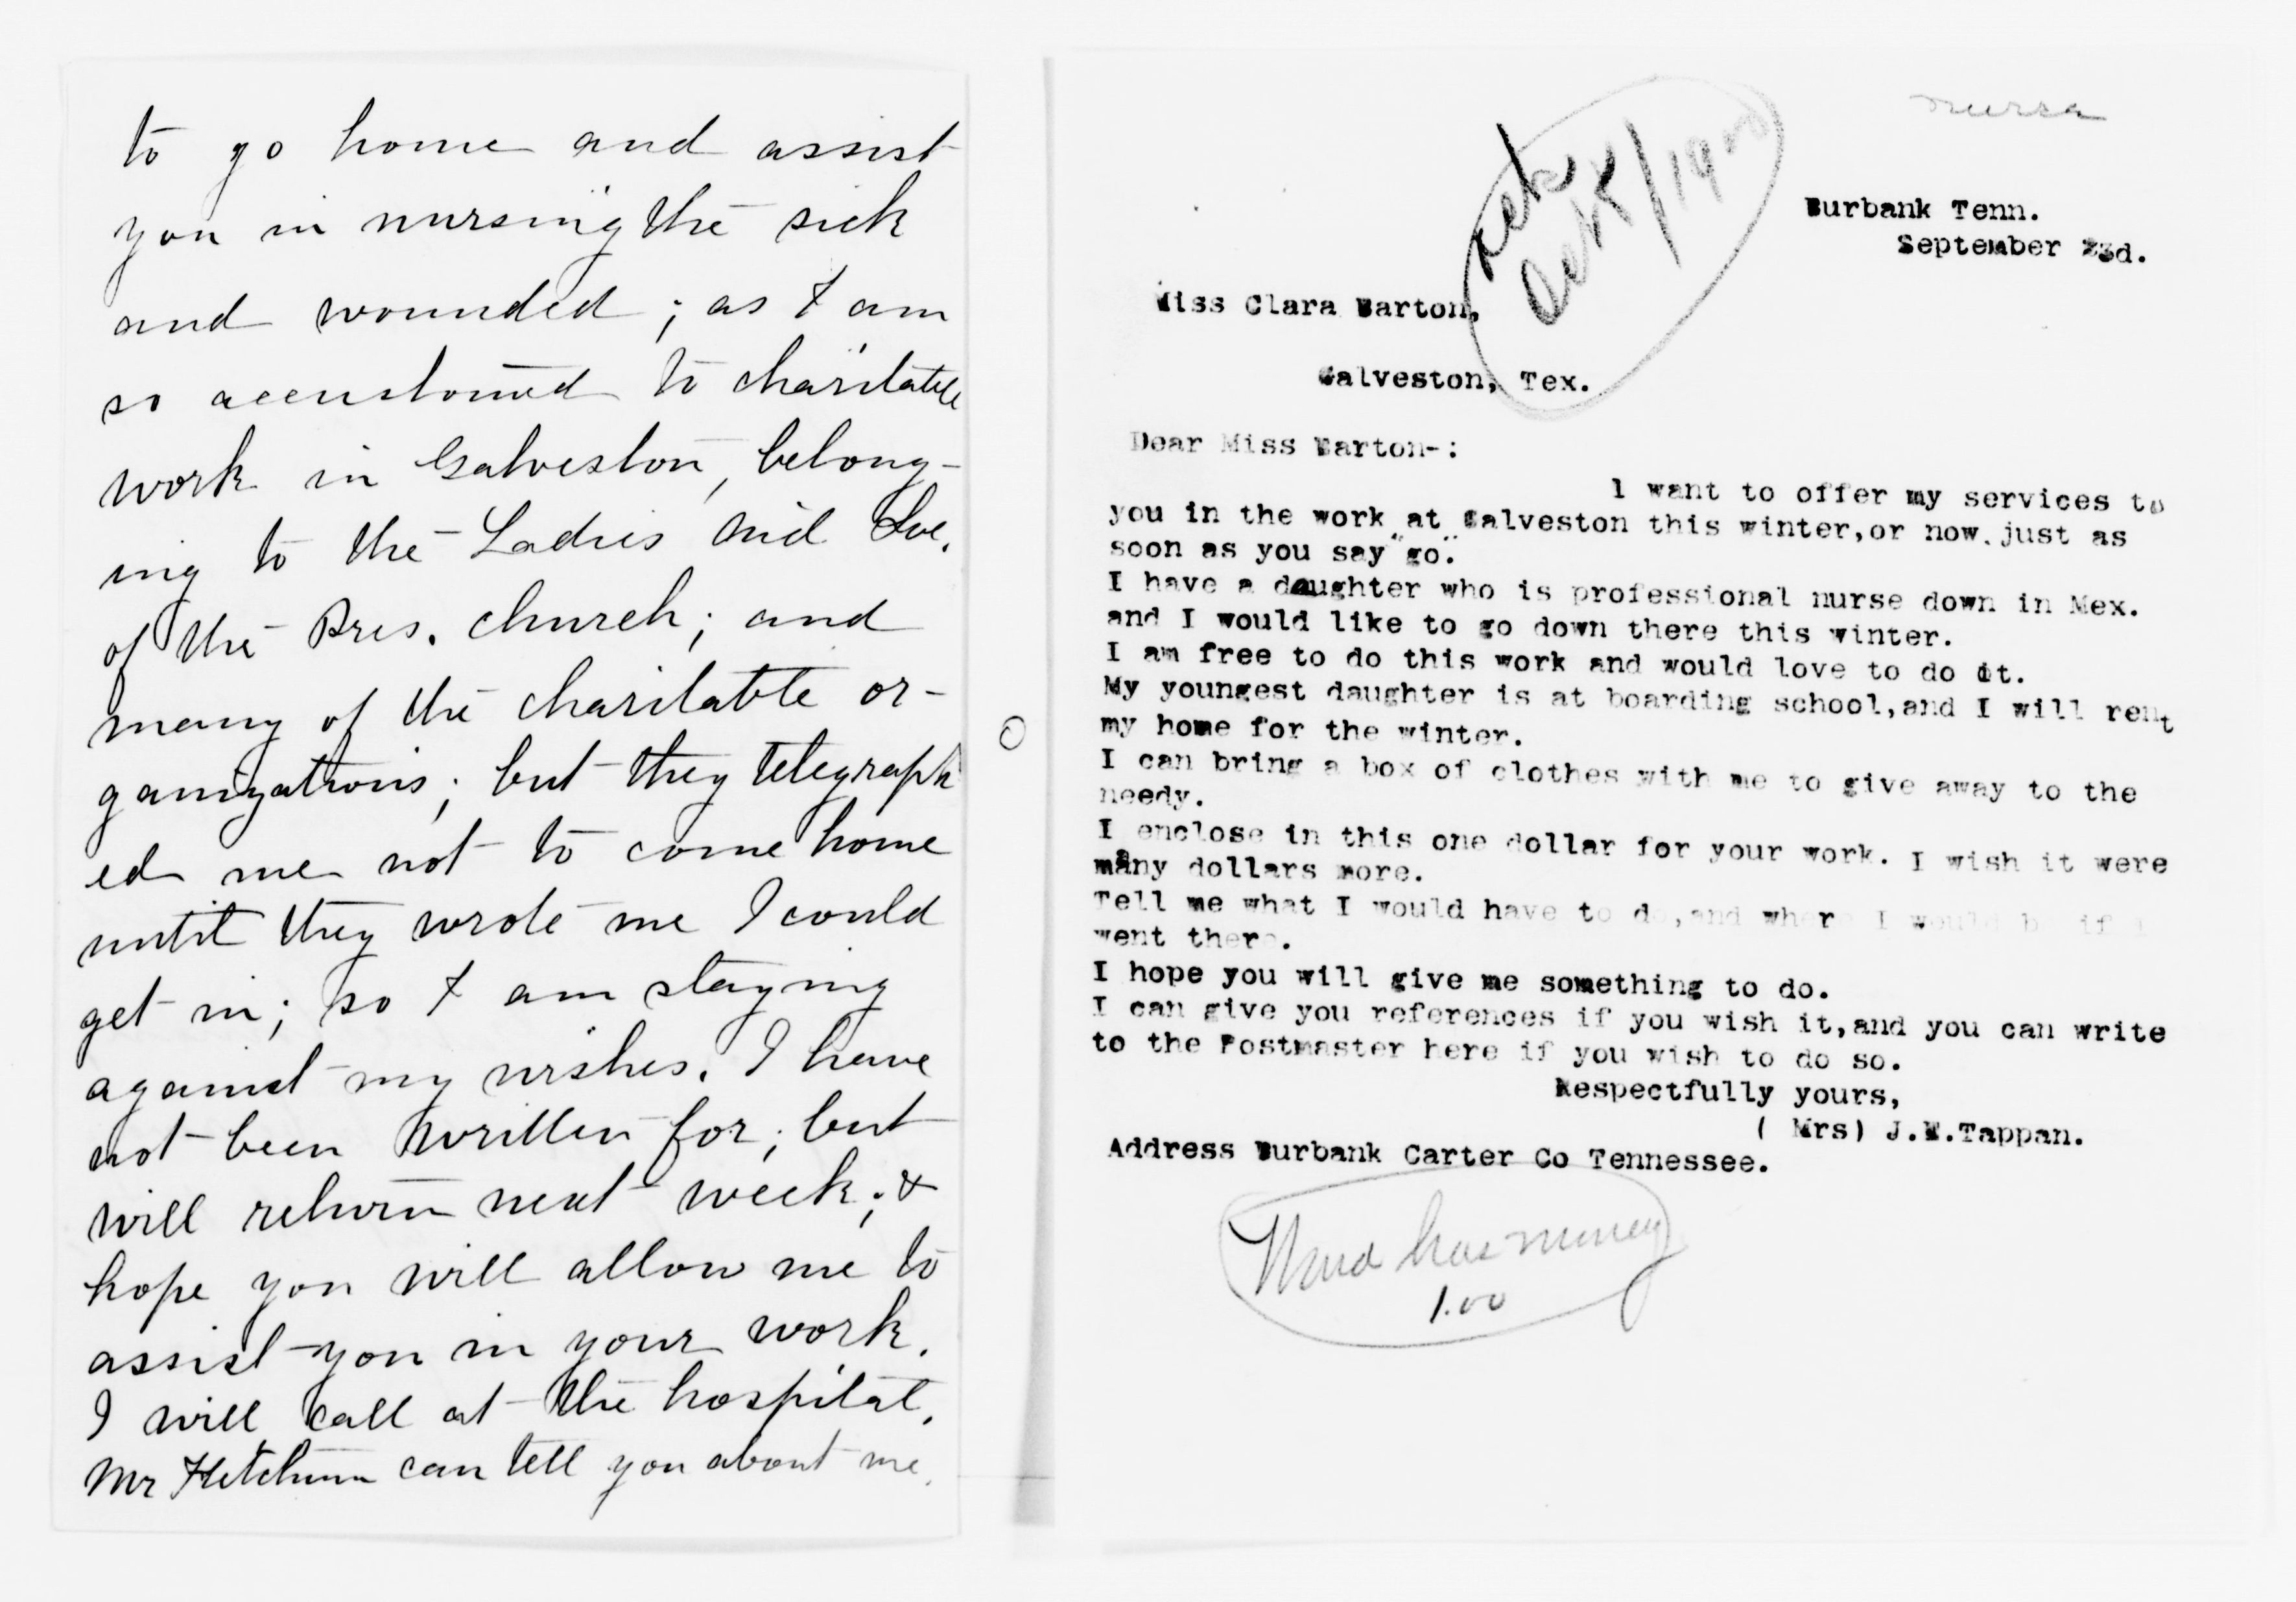 to go home and assist
you in nursing the sick
and wounded; as I am
so accustomed to charitable
work in Galveston, belong-
ing to the Ladies Aid Soc.
of the Pres. church; and
many of the charitable or-
ganizations; but they telegraph
ed me not to come home
until they wrote me I could
get in; so I am staying
against my wishes. I have
not been written for; but
will return next week; &
hope you will allow me to
assist you in your work.
I will call at the hospital.
Mr Ketchum can tell you about me.
nurse
Ack
Oct 8/1900
Burbank Tenn.
September 23d.
Miss Clara Barton,
Galveston, Tex.
Dear Miss Barton-:
I want to offer my services to
you in the work at Galveston this winter,or now.just as
soon as you say "go".
I have a daughter who is professional nurse down in Mex.
and I would like to go down there this winter.
I am free to do this work and would love to do it.
My youngest daughter is at boarding school,and I will rent
my home for the winter.
I can bring a box of clothes with me to give away to the
needy.
I enclose in this one dollar for your work. I wish it were
many dollars more.
Tell me what I would have to do,and where I would be if I
went there.
I hope you will give me something to do.
I can give you references if you wish it,and you can write
to the Postmaster here if you wish to do so.
Respectfully yours,
( Mrs) J.W.Tappan.
Address Burbank Carter Co Tennessee.
Ward has money
1.00